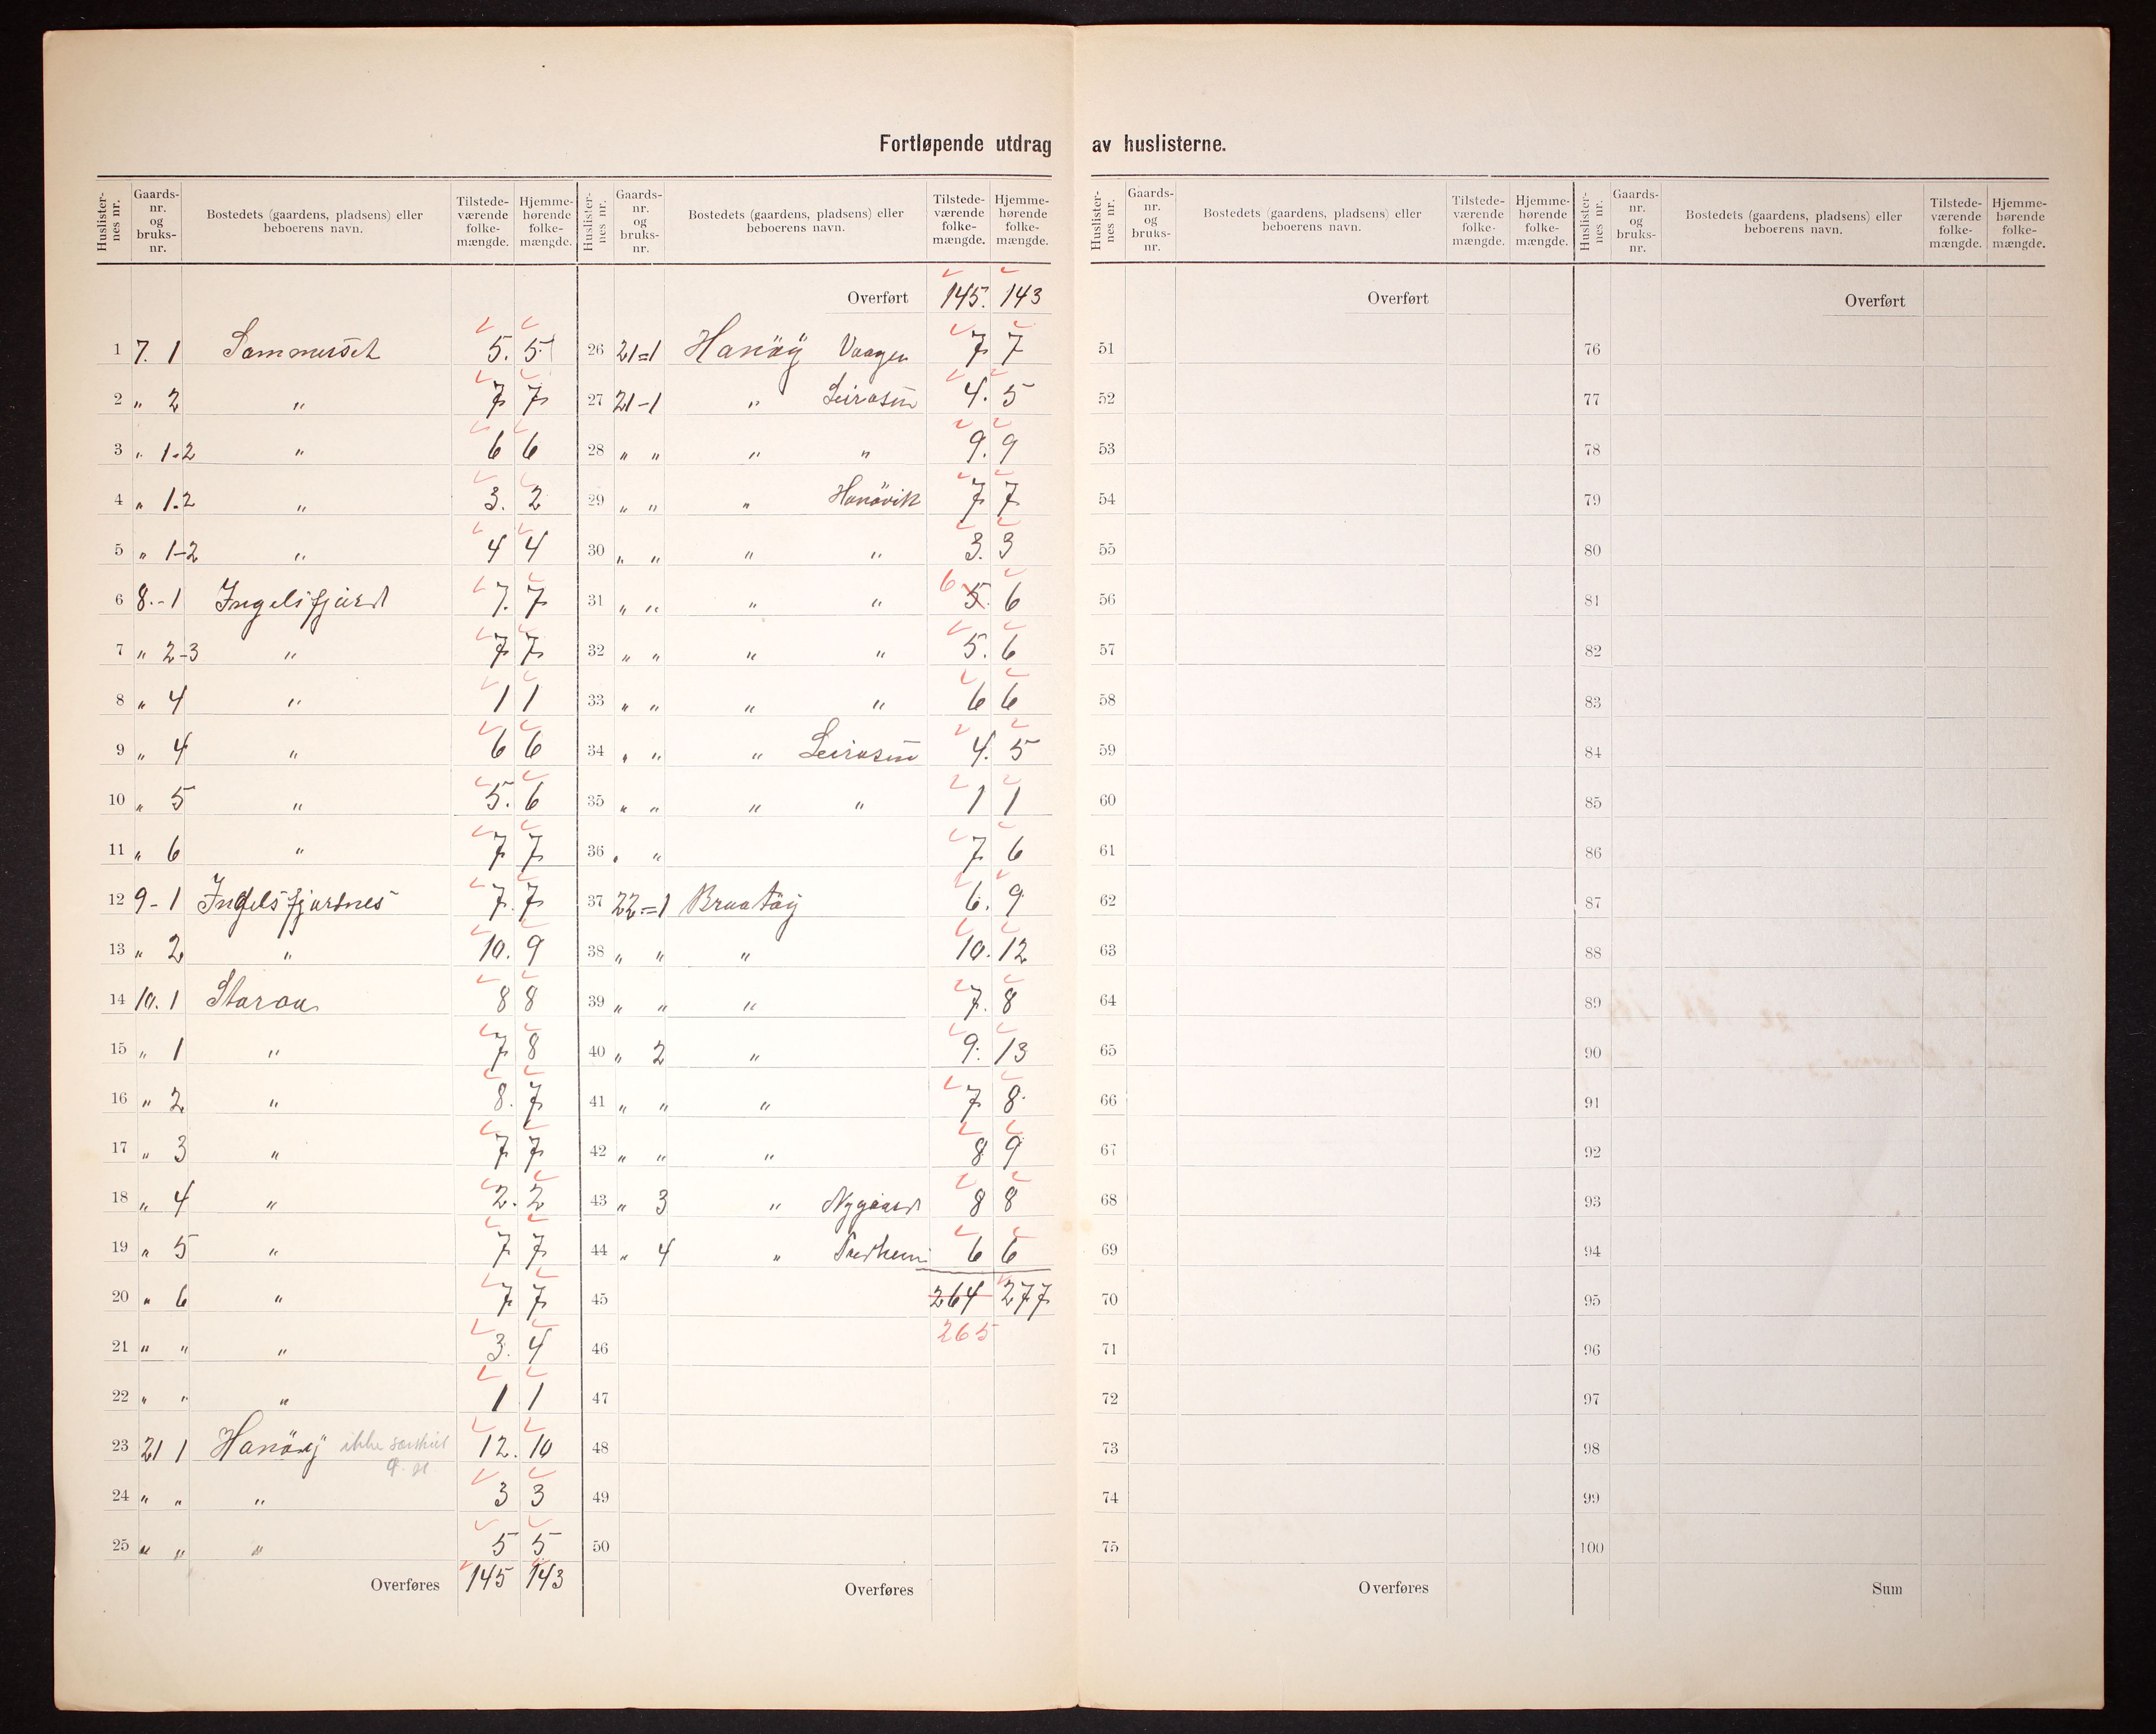 Fortløpende utdrag av huslisterne.
Huslister-nes nr. Gaards-nr. og bruks-nr. Bostedets (gaardens, pladsens) eller beboerens navn. Tilstede-værende folke-mængde. Hjemme-hørende folke-mængde.
1 7. 1 Sommerset 5. 5
2 " 2 " 7 7
3 " 1-2 " 6 6
4 " 1-2 " 3. 2
5 " 1-2 " 4 4
6 8.-1 Ingelsfjord 7. 7
7 " 2-3 " 7 7
8 " 4 " 1 1
9 " 4 " 6 6
10 " 5 " 5. 6
11 " 6 " 7 7
12 9-1 Ingelsfjordnes 7. 7
13 " 2 " 10. 9
14 10. 1 8 8
15 " 1 " 7 8
16 " 2 " 8. 7
17 " 3 " 7 7
18 " 4 " 2. 2
19 " 5 " 7 7
20 " 6 " 7 7
21 " " " 3. 4
22 " " " 1 1
23 21 1 Hanöy ikke 12. 10
24 " " " 3 3
25 " " " 5 5
Overføres 145 143
Huslister-nes nr. Gaards-nr. og bruks-nr. Bostedets (gaardens, pladsens) eller beboerens navn. Tilstede-værende folke-mængde. Hjemme-hørende folke-mængde.
Overført 145. 143
26 21=1 Hanöy Vaagen 7 7
27 21-1 " Leirosen 4. 5
28 " " " " 9. 9
29 " " " Hanövik 7 7
30 " " " " 3. 3
31 " " " " 6 5. 6
32 " " " " 5. 6
33 " " " " 6 6
34 " " " Leirosen 4. 5
35 " " " " 1 1
36 " " 7 6
37 22=1 Braatöy 6. 9
38 " " " 10. 12
39 " " " 7. 8
40 " 2 " 9. 13
41 " " " 7 8
42 " " " 8 9
43 " 3 " Nygaard 8 8
44 " 4 " 6 6
45 264 277
46 265
47
48
49
50
Overføres
Huslister-nes nr. Gaards-nr. og bruks-nr. Bostedets (gaardens, pladsens) eller beboerens navn. Tilstede-værende folke-mængde. Hjemme-hørende folke-mængde.
Overført
51
52
53
54
55
56
57
58
59
60
61
62
63
64
65
66
67
68
69
70
71
72
73
74
75
Overføres
Huslister-nes nr. Gaards-nr. og bruks-nr. Bostedets (gaardens, pladsens) eller beboerens navn. Tilstede-værende folke-mængde. Hjemme-hørende folke-mængde.
Overført
76
77
78
79
80
81
82
83
84
85
86
87
88
89
90
91
92
93
94
95
96
97
98
99
100
Sum